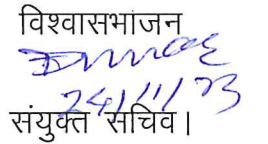 विश्वासभाजन
24/11/23
संयुक्त सचिव।